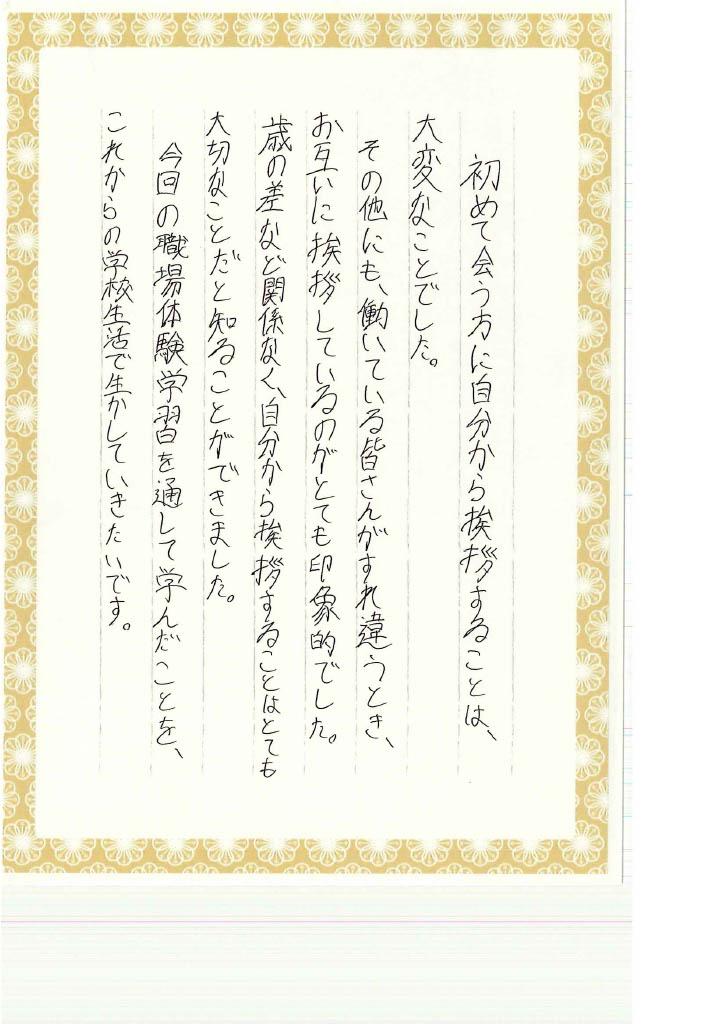 初めて会う方に自分から挨拶することは、
大変なことでした。
その他にも、働いている皆さんがすれ違うとき、
お互いに挨拶しているのがとても印象的でした。
歳の差など関係なく、自分から挨拶することはとても
大切なことだと知ることができました。
今回の職場体験学習を通して学んだことを、
これからの学校生活で生かしていきたいです。